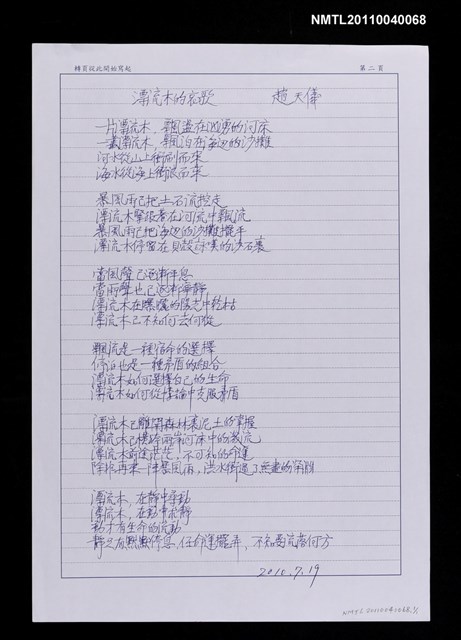 NMTL20110040068
轉頁從此開始寫起
第二頁
漂流木的哀歌 趙天儀
一片漂流木,飄盪在洶湧的河床
一截漂流木,飄泊在海邊的沙灘
河水從山上衝刷而來
海水從海上衝浪而來
暴風雨已把土石流挖走
漂流木緊跟著在河流中飄流
暴風雨已把海邊的沙灘攏手
漂流木停留在貝殼 的沙石裏
當風聲已逐漸平息
當雨聲也已逐漸寧靜
漂流木在曝曬的陽光中乾枯
漂流木已不知何去何從
飄流是一種宿命的選擇
停泊也是一種矛盾的組合
漂流木如何選擇自己的生命
漂流木如何從悖論中克服矛盾
漂流木已離開森林裏泥土的掌握
漂流木已橫跨兩岸河床中的激流
漂流木前途茫茫,不可知的命運
除非再來一陣暴風雨,洪水衝過了 的
漂流木,在靜中求動
漂流木,在動中求靜
動才有生命的流動
靜只有默默停息,任命運擺弄,不知要流落何方
2010.7.19